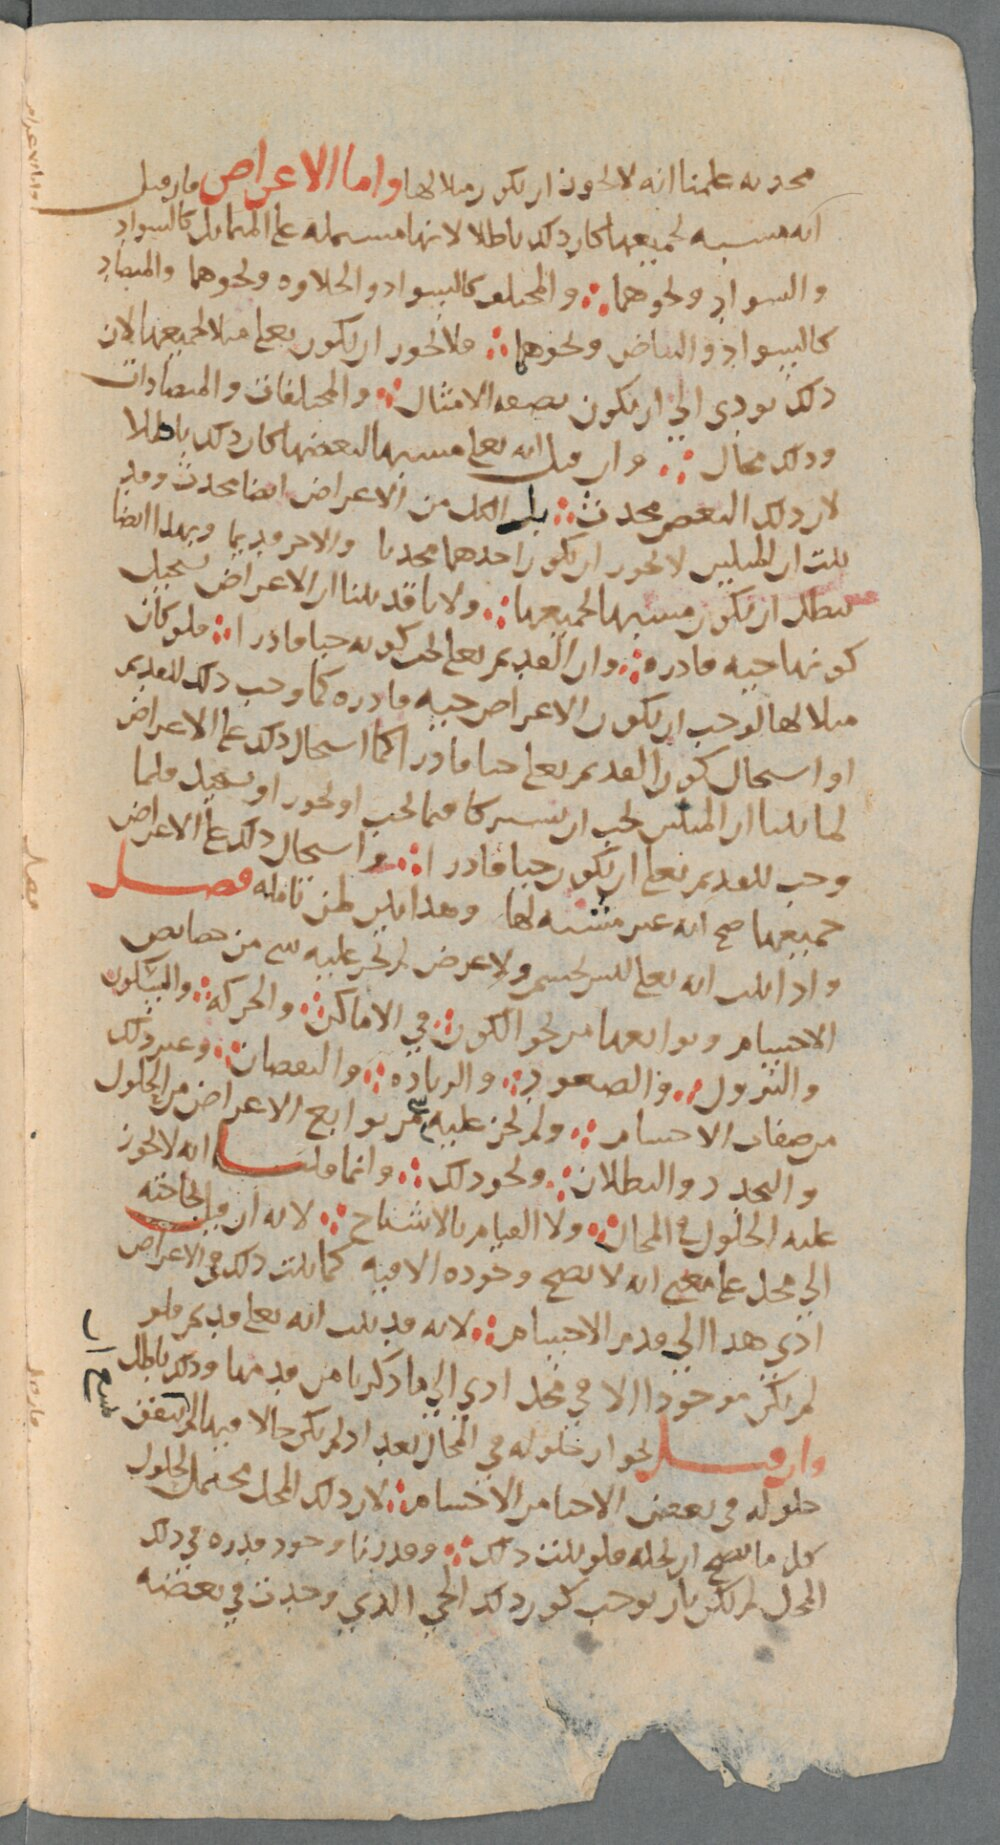 محدثه علمنا انه لا يجوز ان يكون مثلا لها واما الاعراض فان قيل
انه مشبه لجميعها كان ذلك باطلا لانها مشتمله على المتماثل كالسواد
والسواد ونحوهما ⁘ والمختلف كالسواد والحلاوه ونحوهما والمتضاد
كالسواد والبياض ونحوها ⁘ فلا يجوز ان يكون تعلى مثلا لجميعها لان
ذلك يودي الى ان يكون بصفه الامثال ⁘ والمختلفات والمتضادات
وذلك محال ⁘ وان قيل انه تعلى مشبها لبعضها كان ذلك باطلا
لان ذلك البعض محدث ⁘ بل الكل من الاعراض ايضا محدث وقد
بينت ان المثلين لا يجوز ان يكون احدهما محدثا والاخر قديما وبهذا ايضا
يبطل ان يكون مشبها لجميعها ⁘ ولانا قد بينا ان الاعراض يستحيل
كونها حيه قادره ⁘ وان القديم تعلى يجب كونه حيا قادرا ⁘ فلو كان
مثلا لها لوجب ان يكون الاعراض حيه قادره كما وجب ذلك للقديم
او استحال كون القديم تعلى حيا قادرا كما استحال ذلك على الاعراض
لما بينا ان المثلين يجب ان يشتركا فيما يجب او يجوز او يستحيل فلما
وجب للقديم تعلى ان يكون حيا قادرا ⁘ واستحال ذلك على الاعراض
جميعها صح انه غير مشبه لها وهذا بين لمن تامله فصل
واذا ثبت انه تعلى ليس بجسم ولا عرض لم يجز عليه شي من خصايص
الاجسام وتوابعها من نحو الكون ⁘ في الاماكن ⁘ والحركه ⁘ والسكون
والنزول ⁘ والصعود ⁘ والزياده ⁘ والنقصان ⁘ وغير ذلك
من صفات الاجسام ⁘ ولم يجز عليه شي من توابع الاعراض من الحلول
والتجدد والبطلان ⁘ ونحو ذلك ⁘ وانما قلنا انه لا يجوز
عليه الحلول في المحال ⁘ ولا القيام بالاشباح ⁘ لانه ان قيل بحاجته
الى محل على معنى انه لا يصح وجوده الا فيه كما يثبت ذلك في الاعراض
ادى هذا الى قدم الاجسام ⁘ لانه قد ثبت انه تعلى قديم فلو
لم يكن موجودا الا في محل ادى الى ما ذكرنا من قدمها وذلك باطل
وان قيل بجواز حلوله في المحال بعد اذ لم يكن حالا فيها لم يتفق
حلوله في بعض الاحيا من الاجسام ⁘ لان ذلك المحل محتمل لحلول
كل ما يصح ان يحله فلو ثبت ذلك ⁘ وقدرنا وجود قدره في ذلك
المحل لم يكن بان يوجب كون ذلك الحي الذي وجدت في بعضه